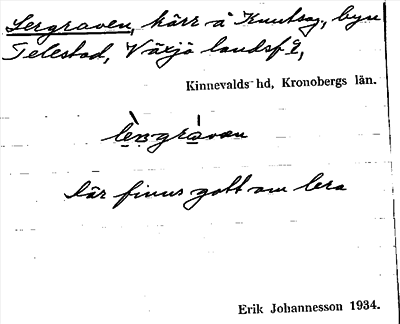 Lergraven, kärr å Knutsag., byn
Telestad, Växjö landsf.,
Kinnevalds hd, Kronobergs län.
lèrgràvan
där finns gott om lera
Erik Johannesson 1934.